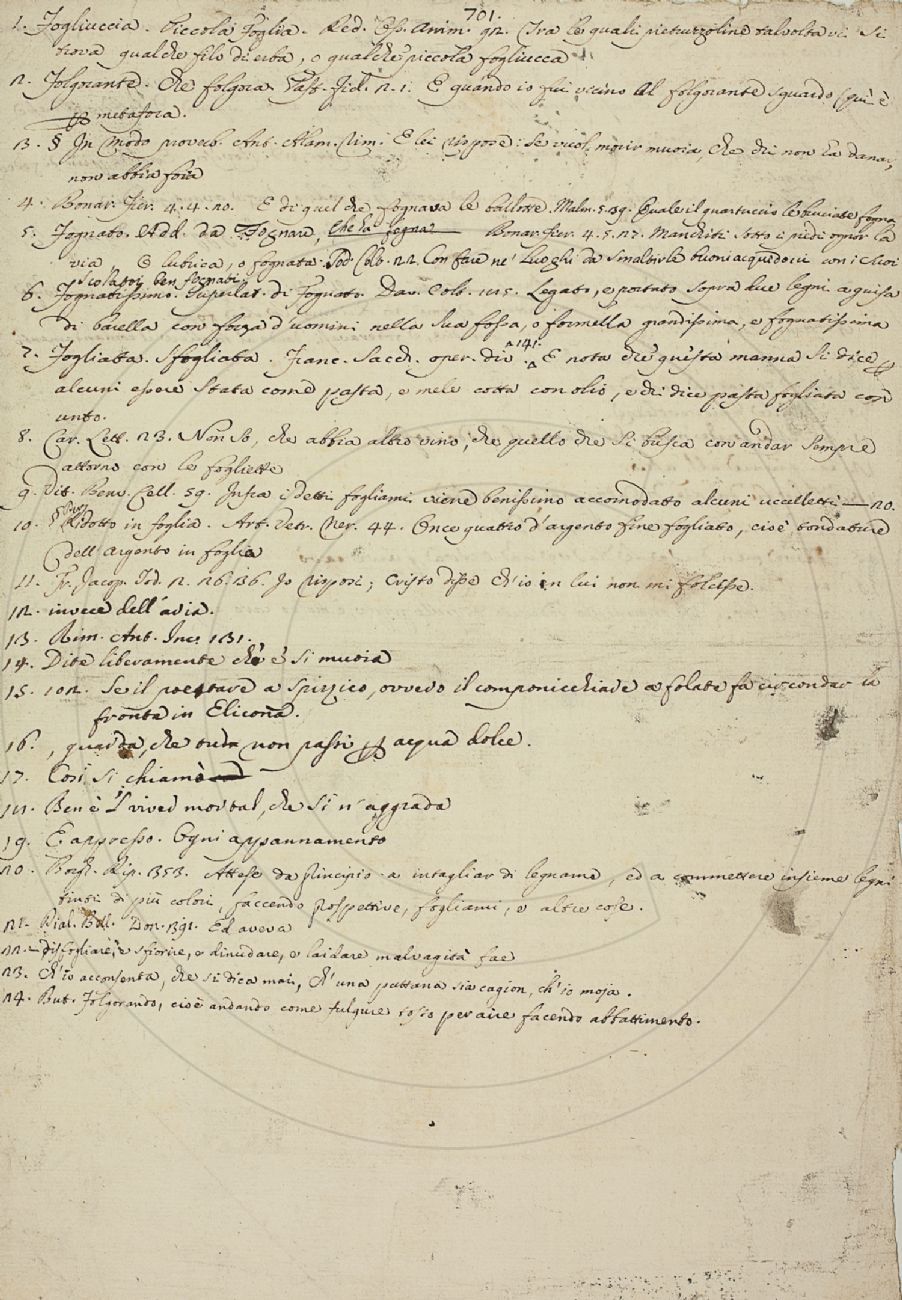 701.
1. Fogliuccia. Piccola Foglia. Red. Esp. Anim. 92. Tra le quali pietruzzoline talvolta vi si
trova qualche filo di erba, o qualche piccola fogliucca
2. Folgorante. Che folgora. Tass. Fid. 2. 1. E quando io fui vicino al folgorante sguardo (qui è
p metafora.
3. § In modo proverb. Ant. Alam. Rim. E lei rispose: se vuol morir muoia, che chi non ha danar,
non abbia foia
4. Bonar. Fier. 4. 4. 20. E di quel che fognava le ballotte. Malm. 5. 39. Quale il quartuccio le bruciate fogna
5. Fognato. Add. da Fognare, che ha fogna Bonar. Fier. 4. 5. 27. Manchiti sotto i piedi ognor la
via O lubrica, o fognata. Pod. Colt. 22. Con fare ne' luoghi da smaltirla buoni acquidocci con i suoi
scolatoj ben fognati
6. Fognatissimo. Superlat. di Fognato. Dav. Colt. 185. Legato, e portato sopra due legni a guisa
di barella con forza d'uomini nella sua fossa, o formella grandissima, e fognatissima
7. Fogliata. Sfogliata. Franc. Sacch. oper. div. 141. E nota che questa manna si dice p
alcuni essere stata come pasta, e mele cotta con olio, e chi dice pasta fogliata con
unto.
8. Car. Lett. 23. Non so, che abbia altro vino, che quello che si busca con andar sempre
attorno con le fogliette
9. Dit. Benv. Cell. 59. In sca i detti fogliami viene benissimo accomodato alcuni uccelletti — 20.
10. § Per Ridotto in foglia. Art. Vetr. Ner. 44. Once quattro d'argento fine fogliato, cioè tondature
dell'argento in foglia
11. Fr. Jacop. Tod. 2. 26. 36. Io risposi; Cristo disse ch'io in lui non mi folcisse.
12. invece dell'aria.
13. Rim. Ant. Inc. 131.
14. Dite liberamente ch'è si muoia
15. 102. Se il poetare a spizzico, ovvero il componicchiare a folate fa circondar la
fronte in Elicona.
16. , guarda, che non passi p acqua dolce.
17. Così si chiamò
18. Ben è 'l viver mortal, che si n'aggrada
19. E appresso. Ogni appannamento
20. Borgh. Rip. 353. Attese da principio a intagliar di legname, ed a commettere insieme legni
tinti di più colori, faccendo prospettive, fogliami, e altre cose.
21. Rial. Bell. Don. 391. Ed aveva
22. Disfogliare, e sfiorire, e dinudare, e laidare malvagità fae
23. Ch'io acconsenta, che si dica mai, Ch'una puttana sia cagion, ch'io moja.
24. But. Folgorando, cioè andando come fulgure tosto per aire facendo abbattimento.